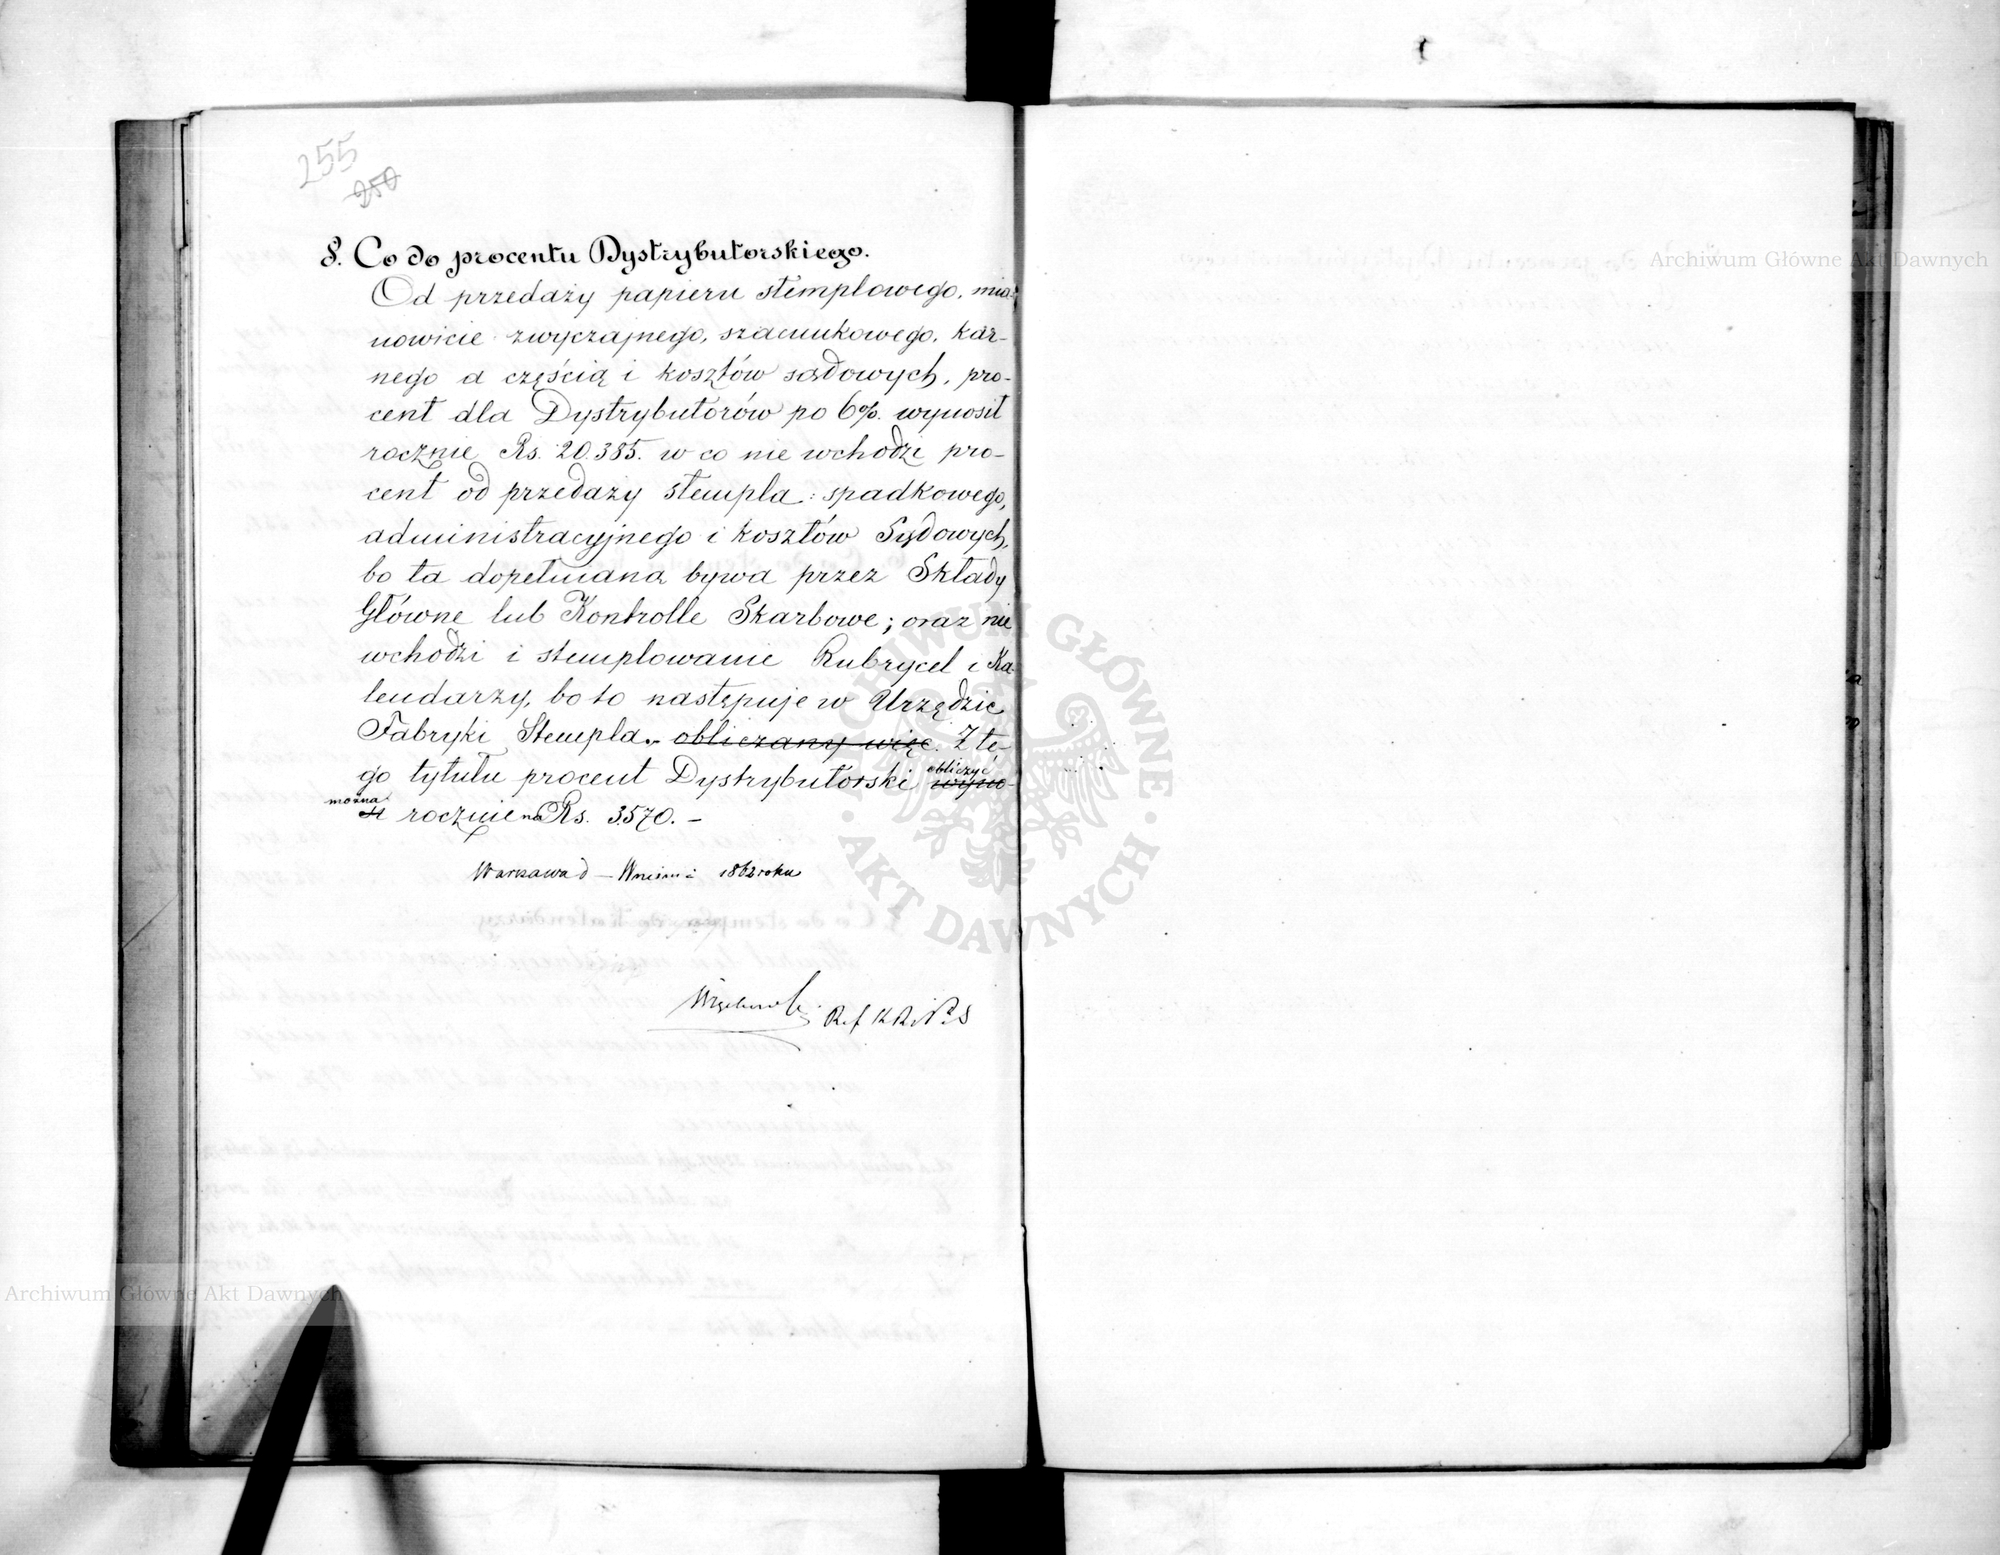 255
250
8. Co do procentu Dystrybutorskiego.
Od przedaży papieru stemplowego, mia-
nowicie zwyczajnego, szacunkowego, kar-
nego a częścią i kosztów sądowych, pro-
cent dla Dystrybutorów po 6%. wynosił
rocznie Rs. 20.385. w co nie wchodzi pro-
cent od przedaży stempla: spadkowego,
administracyjnego i kosztów Sądowych,
bo ta dopełniana bywa przez Składy
Główne lub Kontrolle Skarbowe; oraz nie
wchodzi i stemplowanie Rubrycel i Ka-
lendarzy, bo to następuje w Urzędzie
Fabryki Stempla. obliczany więc. Z te-
go tytułu procent Dystrybutorski obliczyć wyno-
można si rocznie na Rs. 3570. –
Warszawa d – Wrześnii 1862 roku
Ref K R i P S
Archiwum Główne Akt Dawnych
Archiwum Główne Akt Dawnych
ARCHIWUM GŁÓWNE · AKT DAWNYCH ·